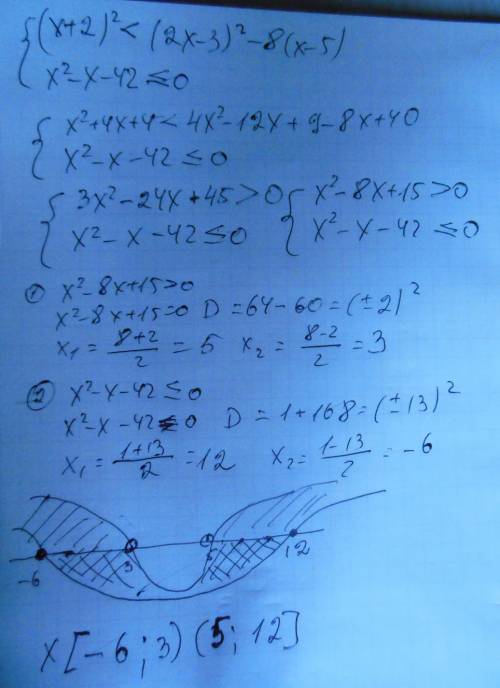 {(x+2)² < (2x-3)² - 8(x-5)
x² - x - 42 ≤ 0
{x² + 4x + 4 < 4x² - 12x + 9 - 8x + 40
x² - x - 42 ≤ 0
{3x² - 24x + 45 > 0 {x² - 8x + 15 > 0
x² - x - 42 ≤ 0 x² - x - 42 ≤ 0
① x² - 8x + 15 > 0
x² - 8x + 15 = 0 D = 64 - 60 = (±2)²
x₁ = (8+2)/2 = 5 x₂ = (8-2)/2 = 3
② x² - x - 42 ≤ 0
x² - x - 42 = 0 D = 1 + 168 = (±13)²
x₁ = (1+13)/2 = 12 x₂ = (1-13)/2 = -6
-6 3 5 12
x [-6; 3) (5; 12]